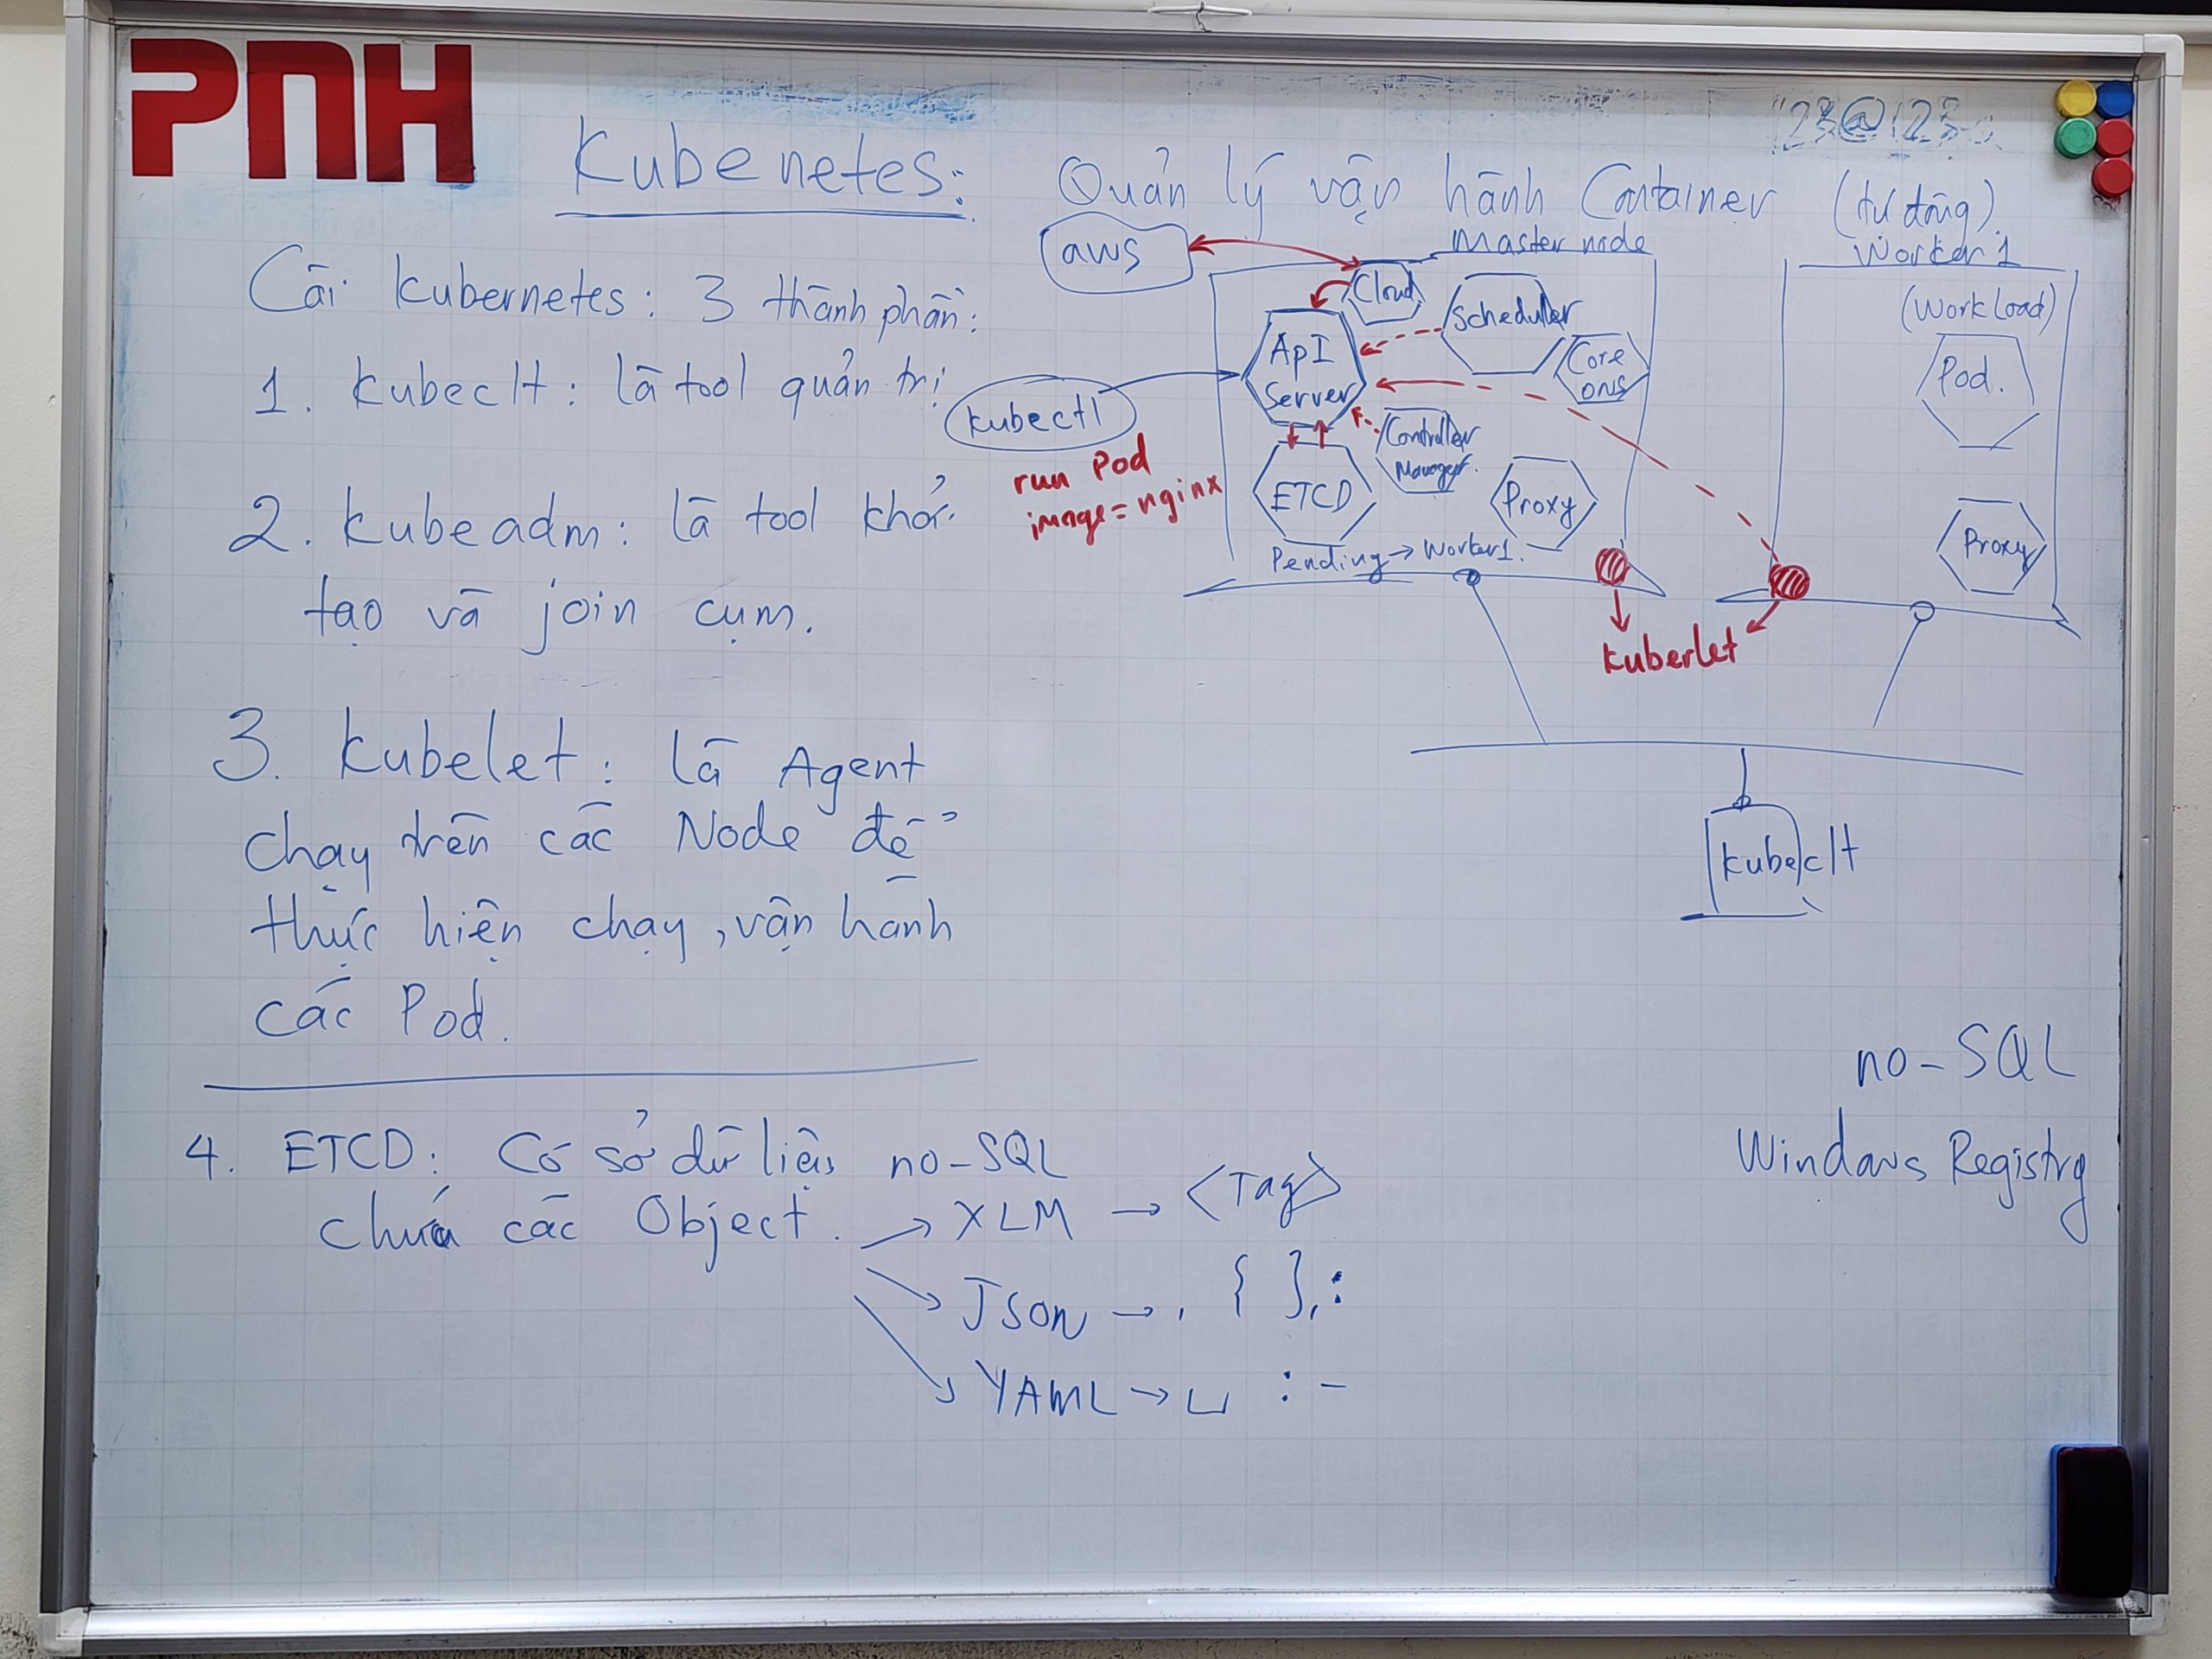 PNH
Kubenetes: Quản lý vận hành Container (tự động).
Cài kubernetes: 3 thành phần:
1. kubeclt: là tool quản trị
2. kubeadm: là tool khởi
tạo và join cụm.
3. kubelet: là Agent
chạy trên các Node để
thực hiện chạy, vận hành
các Pod.
4. ETCD: Cơ sở dữ liệu no-SQL
chứa các Object.
→ XLM → <Tag>
→ Json → , { },:
→ YAML → ⌴ : -
aws
Master node
Cloud
Scheduler
ApI
Server
Core
DNS
kubectl
run Pod
image=nginx
Controller
Manager
ETCD
Proxy
Pending → Worker1.
Worker 1
(WorkLoad)
Pod.
Proxy
kuberlet
kubeclt
no-SQL
Windows Registry